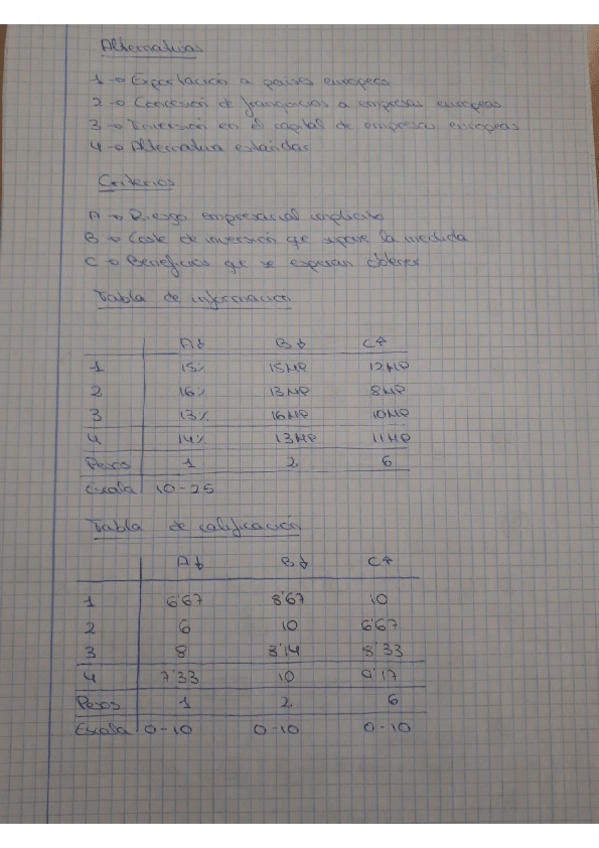 Alternativas
1 → Exportación a países europeos
2 → Concesión de franquicias a empresas europeas
3 → Inversión en el capital de empresas europeas
4 → Alternativa estándar
Criterios
A → Riesgo empresarial implícito
B → Coste de inversión que supone la medida
C → Beneficios que se esperan obtener
Tabla de información
A↓ B↓ C↑
1 15% 15MP 12MP
2 16% 13MP 8MP
3 13% 16MP 10MP
4 14% 13MP 11MP
Pesos 1 2 6
Escala 10-25
Tabla de calificación
A↓ B↓ C↑
1 6'67 8'67 10
2 6 10 6'67
3 8 8'14 8'33
4 7'33 10 9'17
Pesos 1 2 6
Escala 0-10 0-10 0-10